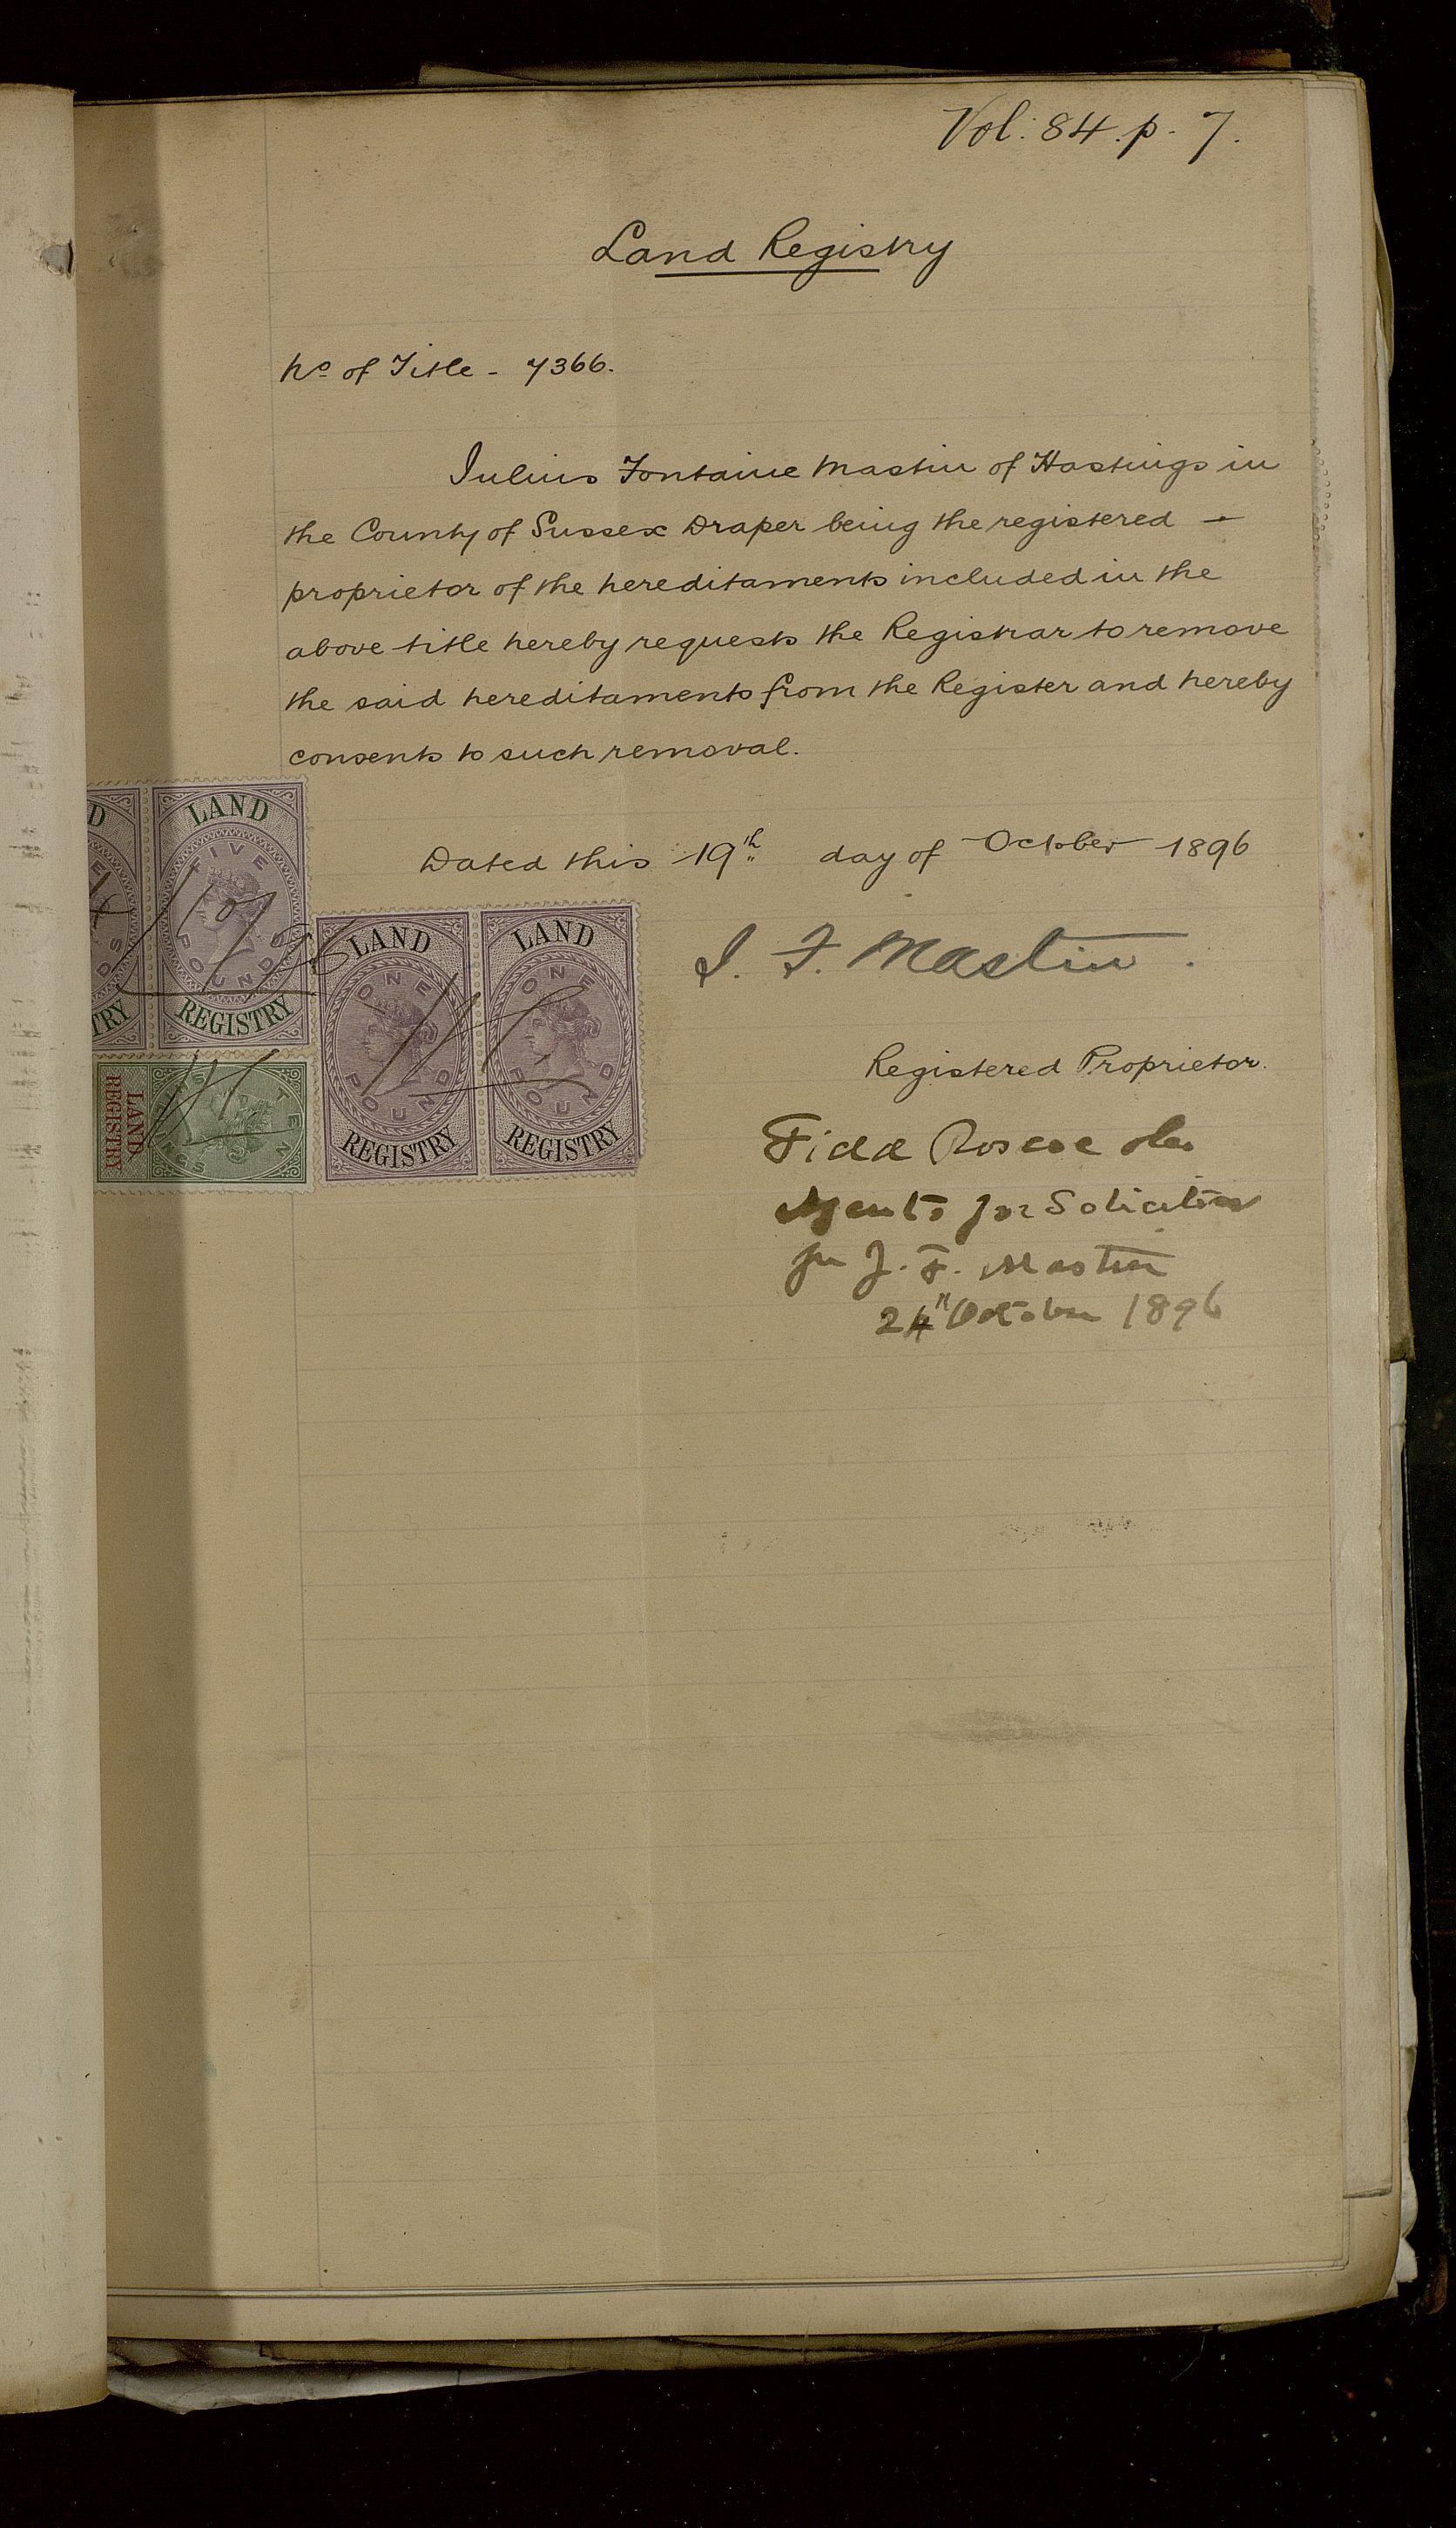 Vol: 84. p. 7.
Land Registry
No of Title - 7366.
Julius Fontaine Mastin of Hastings in
the County of Sussex Draper being the registered —
proprietor of the hereditaments included in the
above title hereby requests the Registrar to remove
the said hereditaments from the Register and hereby
consents to such removal.
Dated this 19th day of October 1896
J. F. Mastin.
Registered Proprietor.
Field Roscoe & Co
Agents for Solicitors
for J. F. Mastin
24th October 1896
D
TRY
LAND
FIVE
POUNDS
REGISTRY
LAND
ONE
POUND
REGISTRY
LAND
ONE
POUND
REGISTRY
LAND
REGISTRY
TEN